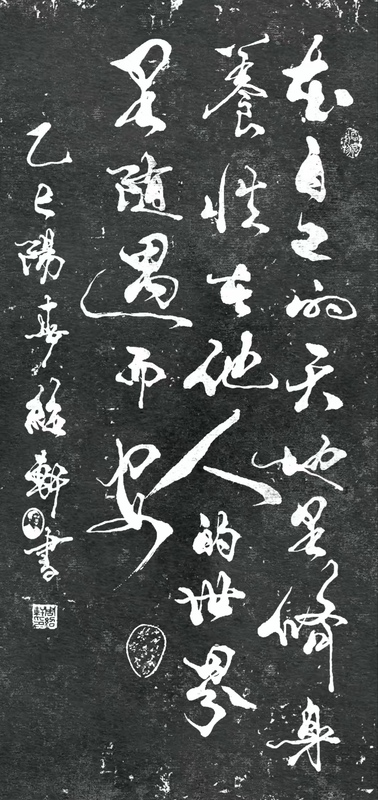 在自己的天地是修身
養性在他人的世界
是隨遇而安
乙巳陽春軒書